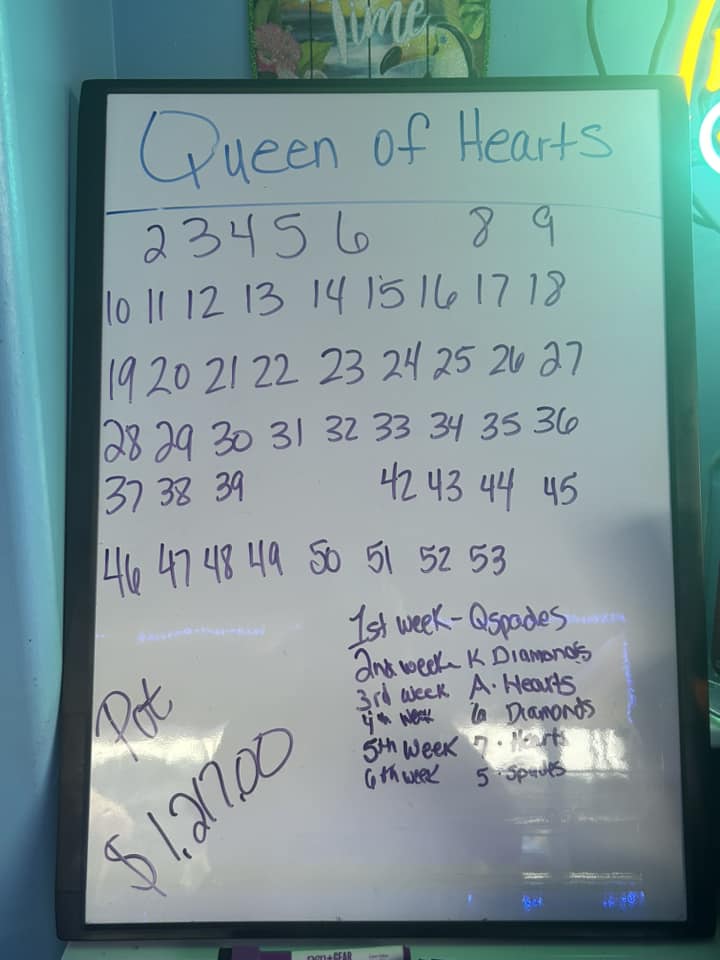 Time
Queen of Hearts
2 3 4 5 6 8 9
10 11 12 13 14 15 16 17 18
19 20 21 22 23 24 25 26 27
28 29 30 31 32 33 34 35 36
37 38 39 42 43 44 45
46 47 48 49 50 51 52 53
1st week - Q spades
2nd week K Diamonds
3rd week A. Hearts
4th week 6 Diamonds
5th week 7. Hearts
6th week 5. Spades
Pot
$1,217.00
PEN+GEAR